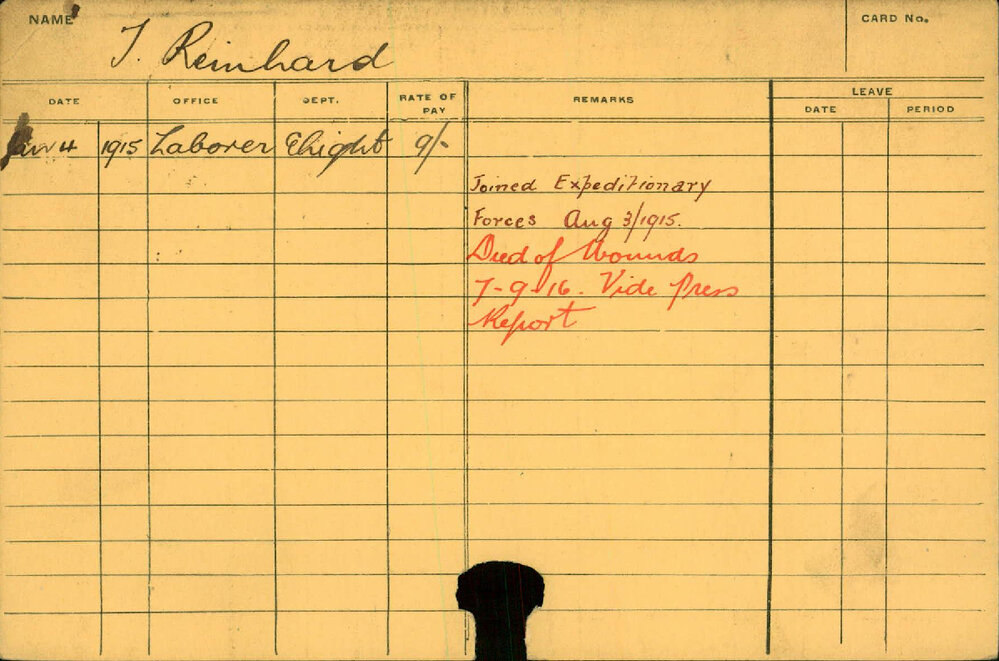 NAME
T. Reinhard
CARD No.
DATE OFFICE DEPT. RATE OF PAY REMARKS LEAVE
DATE PERIOD
4 1915 Laborer Elight 9/-
Joined Expeditionary
Forces Aug 3/1915.
Died of Wounds
7-9-16. Vide Press
Report